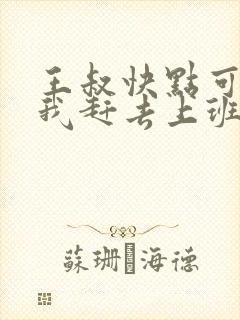 王叔快點可
我赶去上班
蘇珊·海德